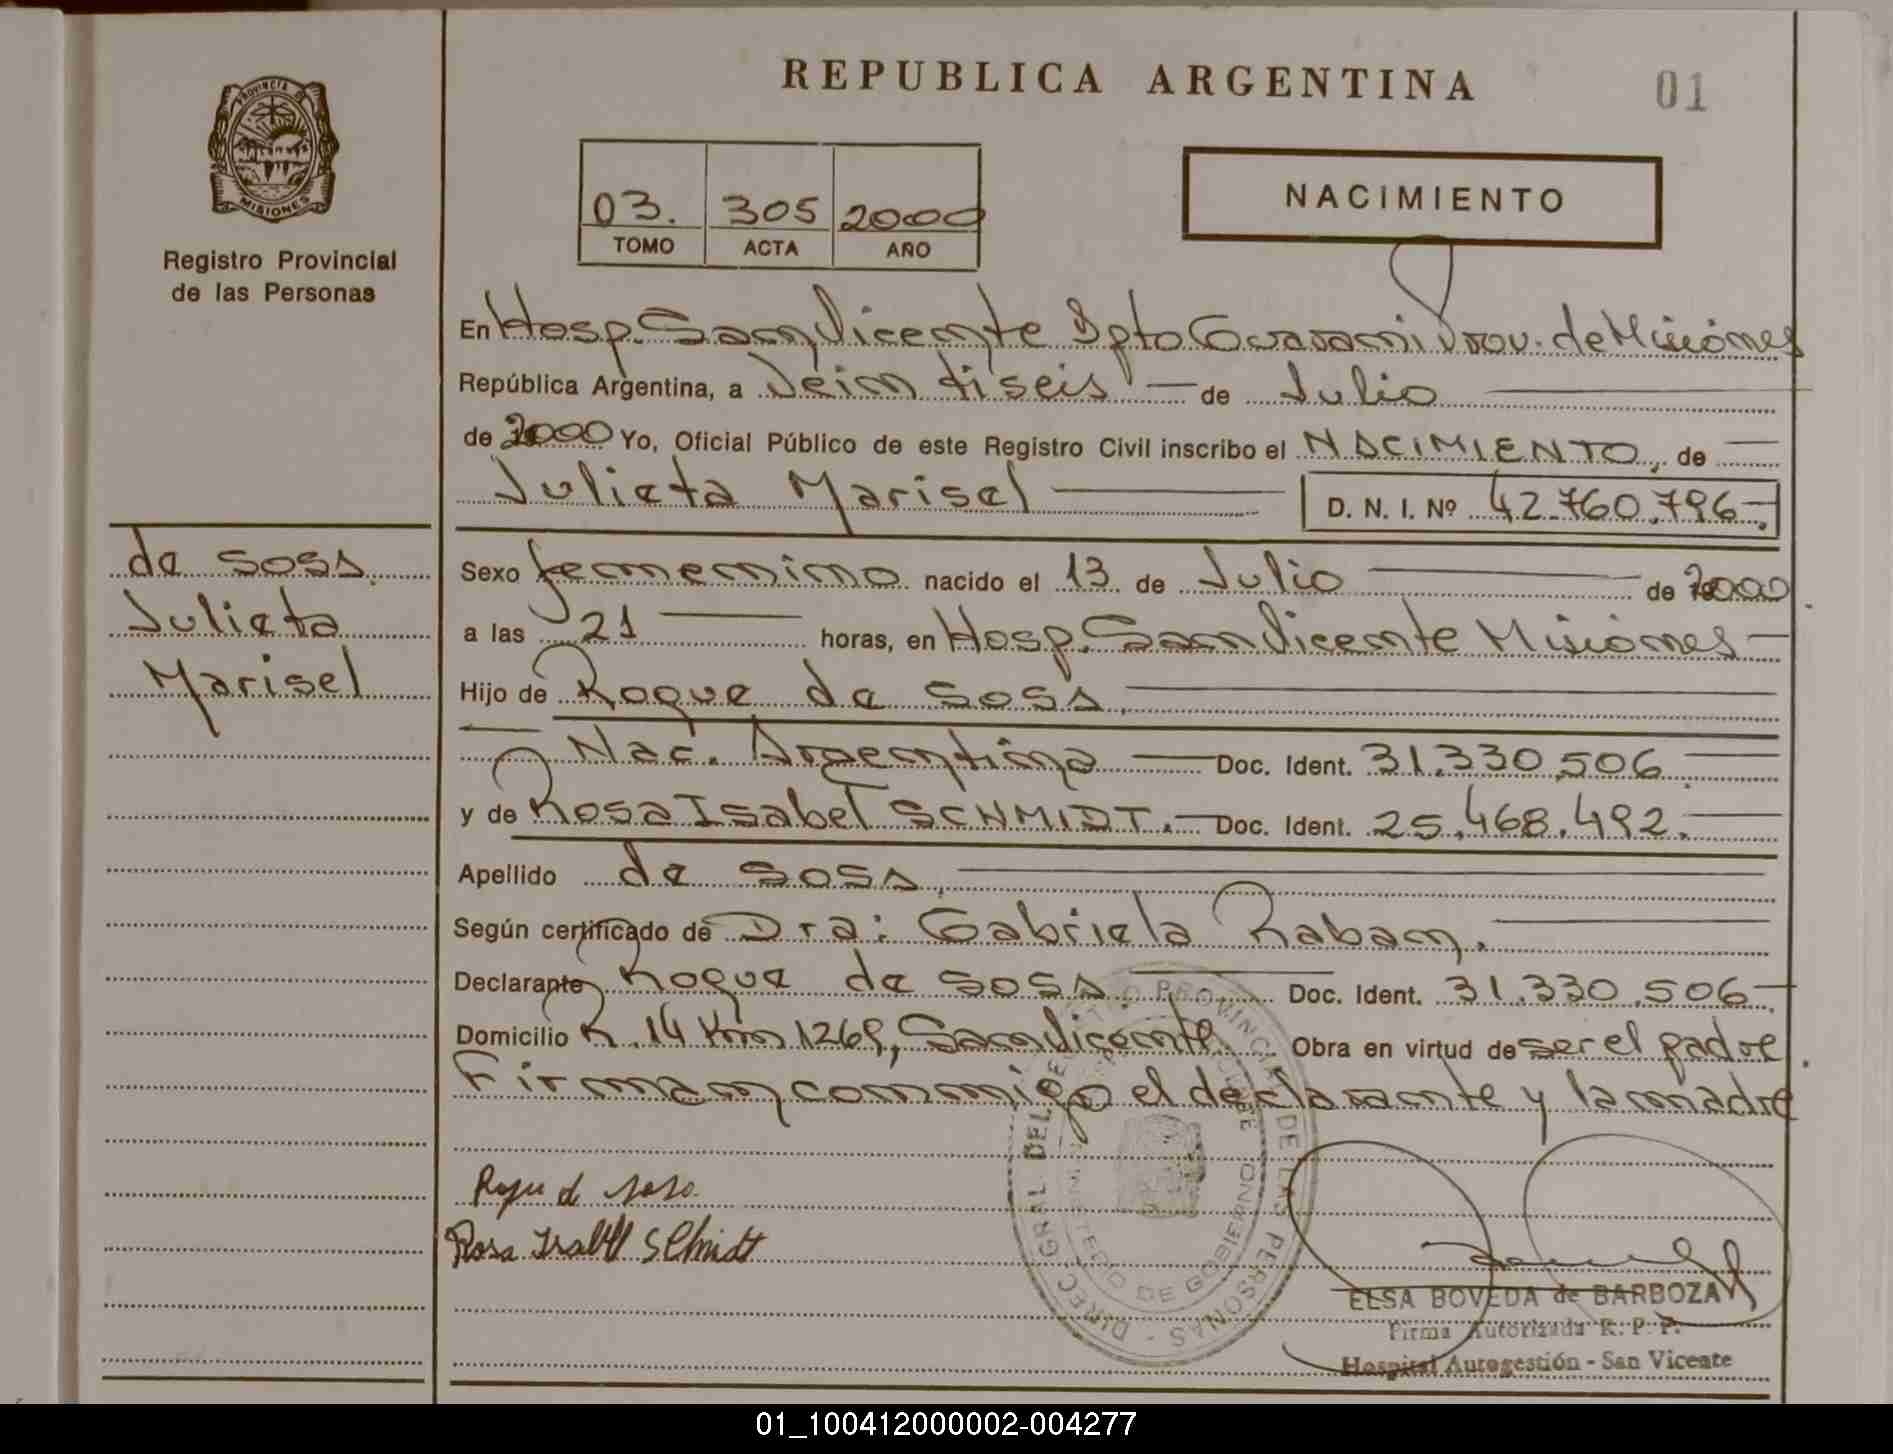 REPUBLICA ARGENTINA
01
PROVINCIA DE
MISIONES
Registro Provincial
de las Personas
03. 305 2000
TOMO ACTA AÑO
NACIMIENTO
En Hosp. San Vicente Dpto Guarani Prov. de Misiones
República Argentina, a Veintiseis de Julio
de 2000 Yo, Oficial Público de este Registro Civil inscribo el NACIMIENTO, de
Julieta Marisel D. N. I. Nº 42.760.796-.
de SOSA.
Julieta
Marisel
Sexo femenino nacido el 13 de Julio de 2000.
a las 21 horas, en Hosp. San Vicente Misiones
Hijo de Roque de SOSA.
Nac. Argentina Doc. Ident. 31.330.506.
y de Rosa Isabel SCHMIDT. Doc. Ident. 25.468.492.
Apellido de SOSA.
Según certificado de Dra: Gabriela Raban.
Declarante Roque de SOSA. Doc. Ident. 31.330.506.
Domicilio R. 14 Km 1269, San Vicente Obra en virtud de ser el padre.
Firman conmigo el declarante y la madre
Roque de sosa
Rosa Isabel Schmidt
DIREC. GRAL. DEL REGISTRO PROVINCIAL DE LAS PERSONAS
MINISTERIO DE GOBIERNO
ELSA BOVEDA de BARBOZA
Firma Autorizada R. P. P.
Hospital Autogestión - San Vicente
01_100412000002-004277